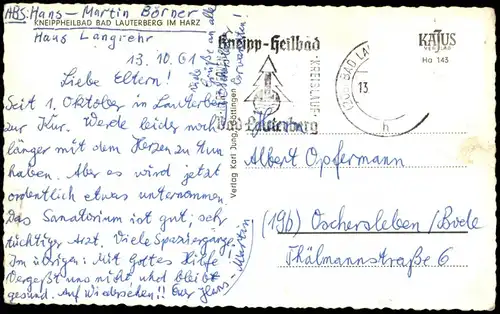 ABS: Hans-Martin Börner
KNEIPPHEILBAD BAD LAUTERBERG IM HARZ
Hans Langrehr
13.10.61
Liebe Eltern!
Seit 1. Oktober in Lauterberg
zur Kur. Werde leider noch
länger mit dem Herzen zu tun
haben. Aber es wird jetzt
ordentlich etwas unternommen.
Das Sanatorium ist gut; sehr
tüchtiger Arzt. Viele Spaziergänge.
Im übrigen: Mit Gottes Hilfe
Vergeßt uns nicht und bleibt
gesund. Auf Wiedersehen!! Euer Hans-Martin
Viele
Grüße an alle
Verwandten
Verlag Karl Jung, Göttingen
Kneipp-Heilbad
KREISLAUF
Bad Lauterberg
BAD LA
13
h
KATUS
VERLAG
Ha 143
Albert Opfermann
(19b) Oschersleben/Bode
Thälmannstraße 6